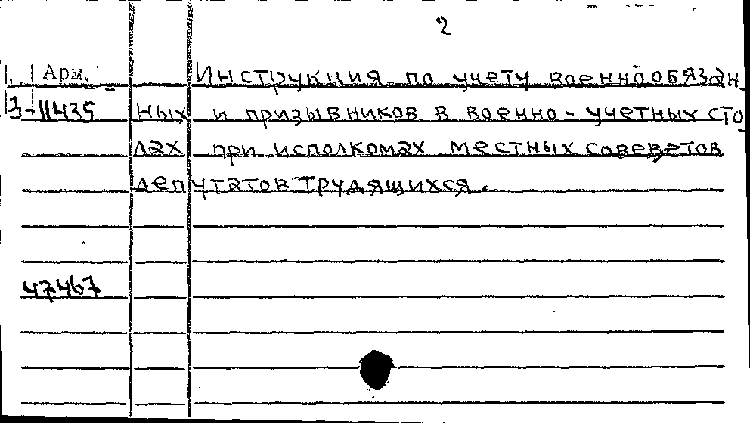 2
Арм. Инструкция по учету военнообязан
3-11435 ных и призывников в военно-учетных сто
лах при исполкомах местных советов
депутатов трудящихся.
47467